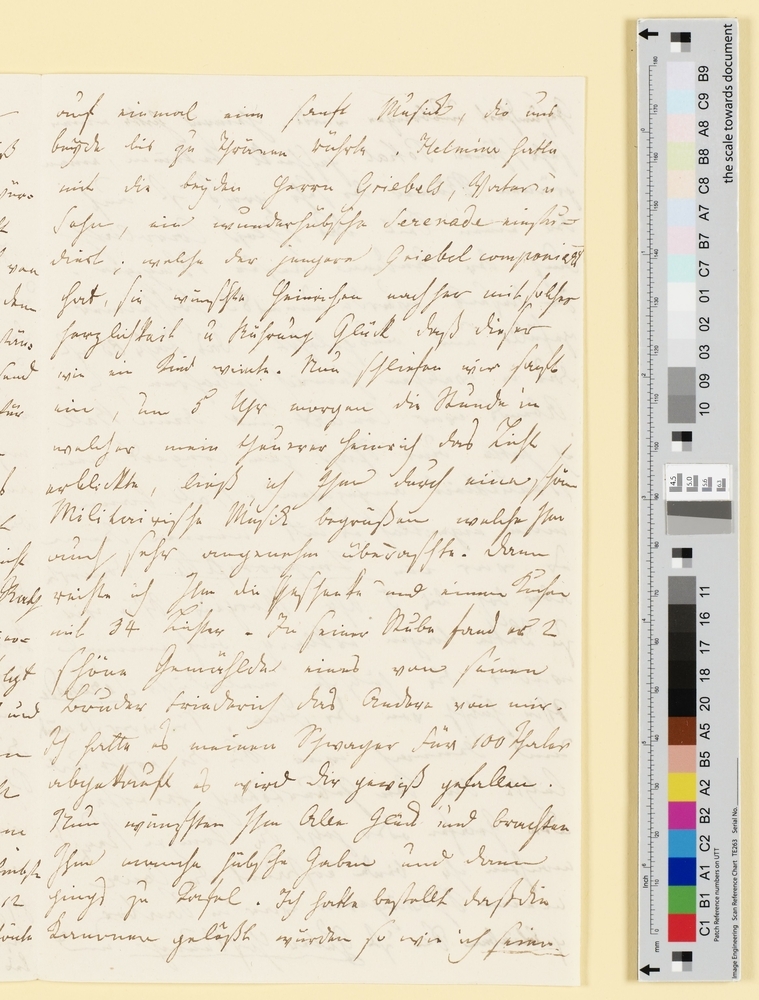 auf einmal eine sanft Musick, die uns
beyde bis zu Thränen rührte. Helmine hatte
mit die beyden Herrn Griebels, Vater u
Sohn, ein wunderhübsche Serenade einstu=
diert, welche der jüngere Griebel componiert
hat, sie wünschte Heinrichen nachher mit solcher
herzlichkeit u Rührung Glück daß dieser
wie ein Kind weinte. Nun schliefen wir sanft
ein, um 5 Uhr morgen die Stunde in
welcher mein theurer Heinrich das Licht
erblickte, ließ ich Ihm durch eine schön
Militairische Musick begrüßen welche Ihn
auch sehr angenehm überraschte. Dann
reichte ich Ihm die und einen Kuchen
mit 34 Lichter. In seiner Stube fand er 2
schöne Gemählde eines von seinen
Bruder Friederich das Andere von mir.
Ich hatte es meinen Schwager für 100 Thaler
abgekauft es wird dir gewiß gefallen.
Nun wünschten Ihm Alle Glück und brachten
Ihm manche hübsche Gaben und dann
gings zu Tafel. Ich hatte bestellt daß die
Kanonen gelößt würden so wie ich seine
the scale towards document
B9
C9
A8
B8
C8
A7
B7
C7
01
02
03
09
10
11
16
17
18
20
A5
B5
A2
B2
C2
A1
B1
C1
Patch Reference numbers on UTT
Image Engineering Scan Reference Chart TE263 Serial No.